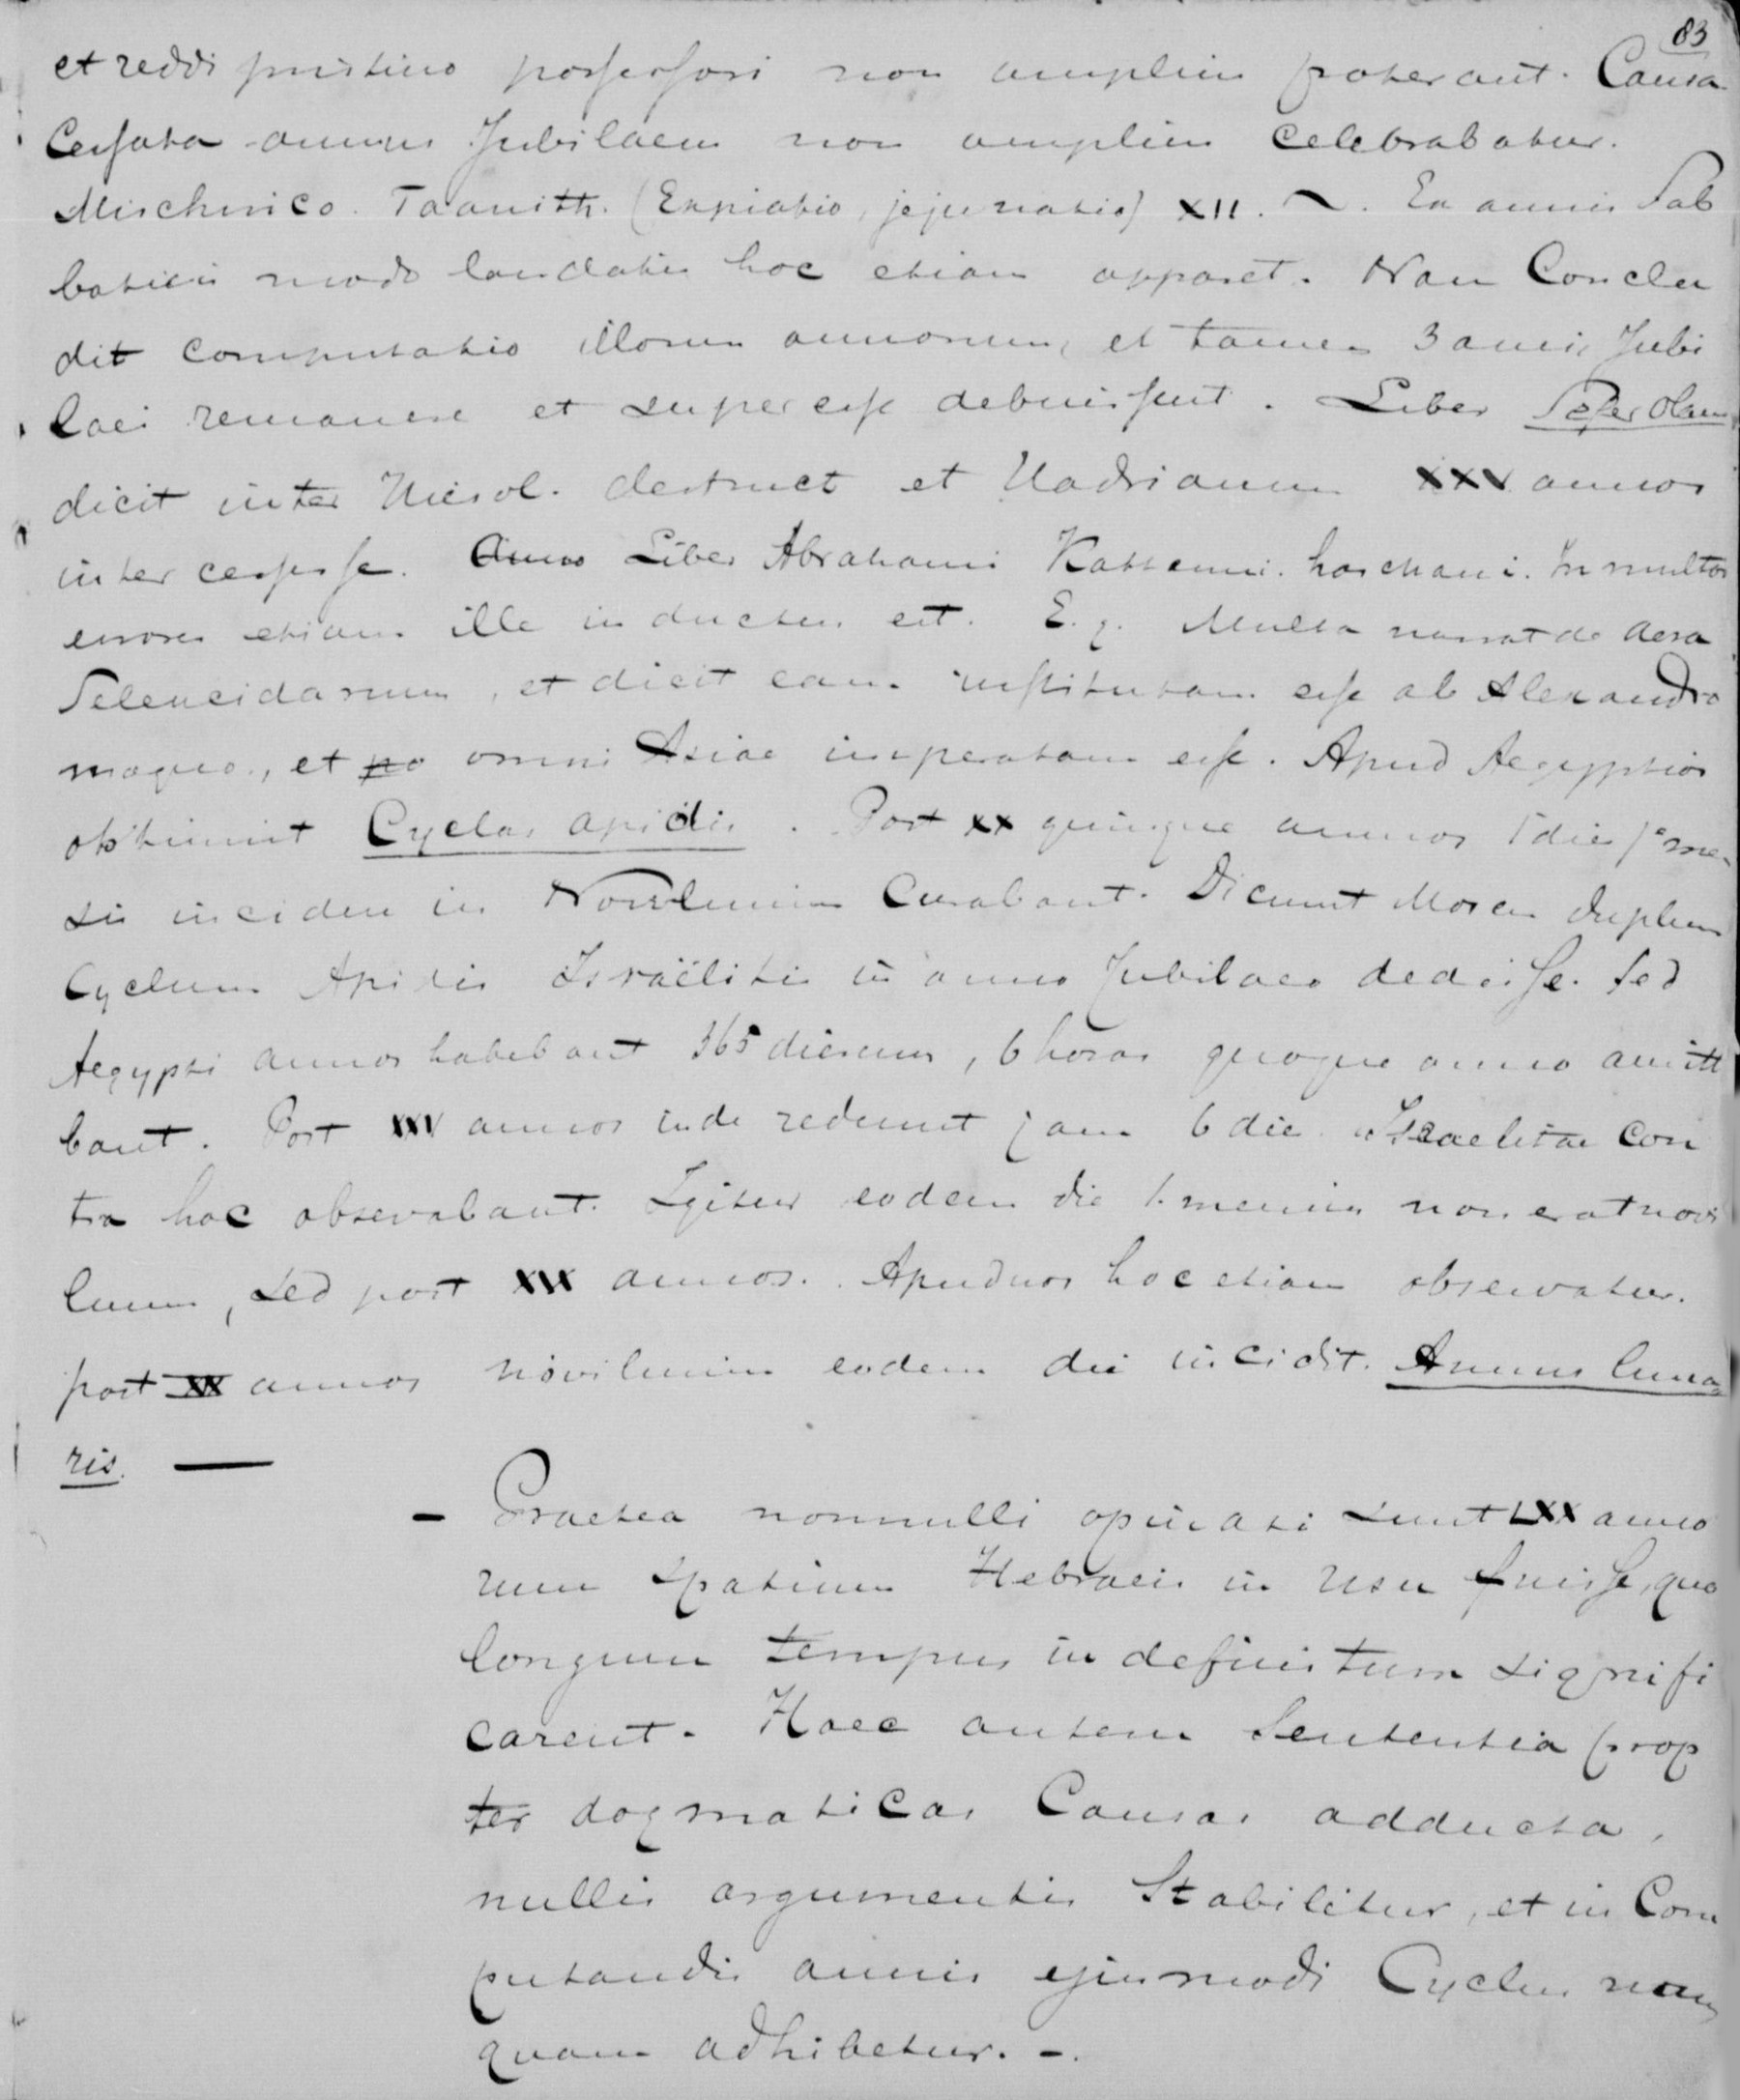 83
et reddi pristino possessori non amplius poterant. Causa
Cessata annus Jubilaeus non amplius celebrabatur.
Mischnico. Taanith. (Expiatio, jejunatio) XII. Ex annis Sab
baticis modo laudatis hoc etiam apparet. Nam Conclu
dit computatio illorum annorum, et tamen 3 annis Jubi
laei remanere et superesse debuissent. Liber Seder Olam
dicit inter Hierol. destruct et Hadrianum XXV annos
intercessisse. Liber Abrahami In multos
errores etiam ille inductus est. E. g. Multa narrat de Aera
Seleucidarum, et dicit eam institutam esse ab Alexandro
magno, et omni Asiae imperatam esse. Apud Aegyptios
obtinuit Cyclus apidis. Post XX quinque annos 1 die 1e men
sis incidere in Novilunium Curabant. Dicunt Mosen duplum
Cyclum Apidis Israëlitis in anno Jubilaeo dedisse. Sed
Aegypti annos habebant 365 dierum, 6 horas quoque anno amitt
bant. Post XXV annos inde redeunt jam 6 die. Israelitae Con
tra hoc observabant. Igitur eodem die 1. mensis non erat novi
lunum, sed post XIX annos. Apud nos hoc etiam observatur.
post annos novilunium eodem die incidit. Annus luna
ris. —
- Praetea nonnulli opinati sunt LXX anno
rum spatium Hebraeis in usu fuisse, quo
longum tempus indefinitum signifi
carent. Haec autem Sententia prop
ter dogmaticas Causas adducta,
nullis argumentis Stabilitur, et in Com
putandis annis ejusmodi Cyclus nun
quam adhibetur. -.